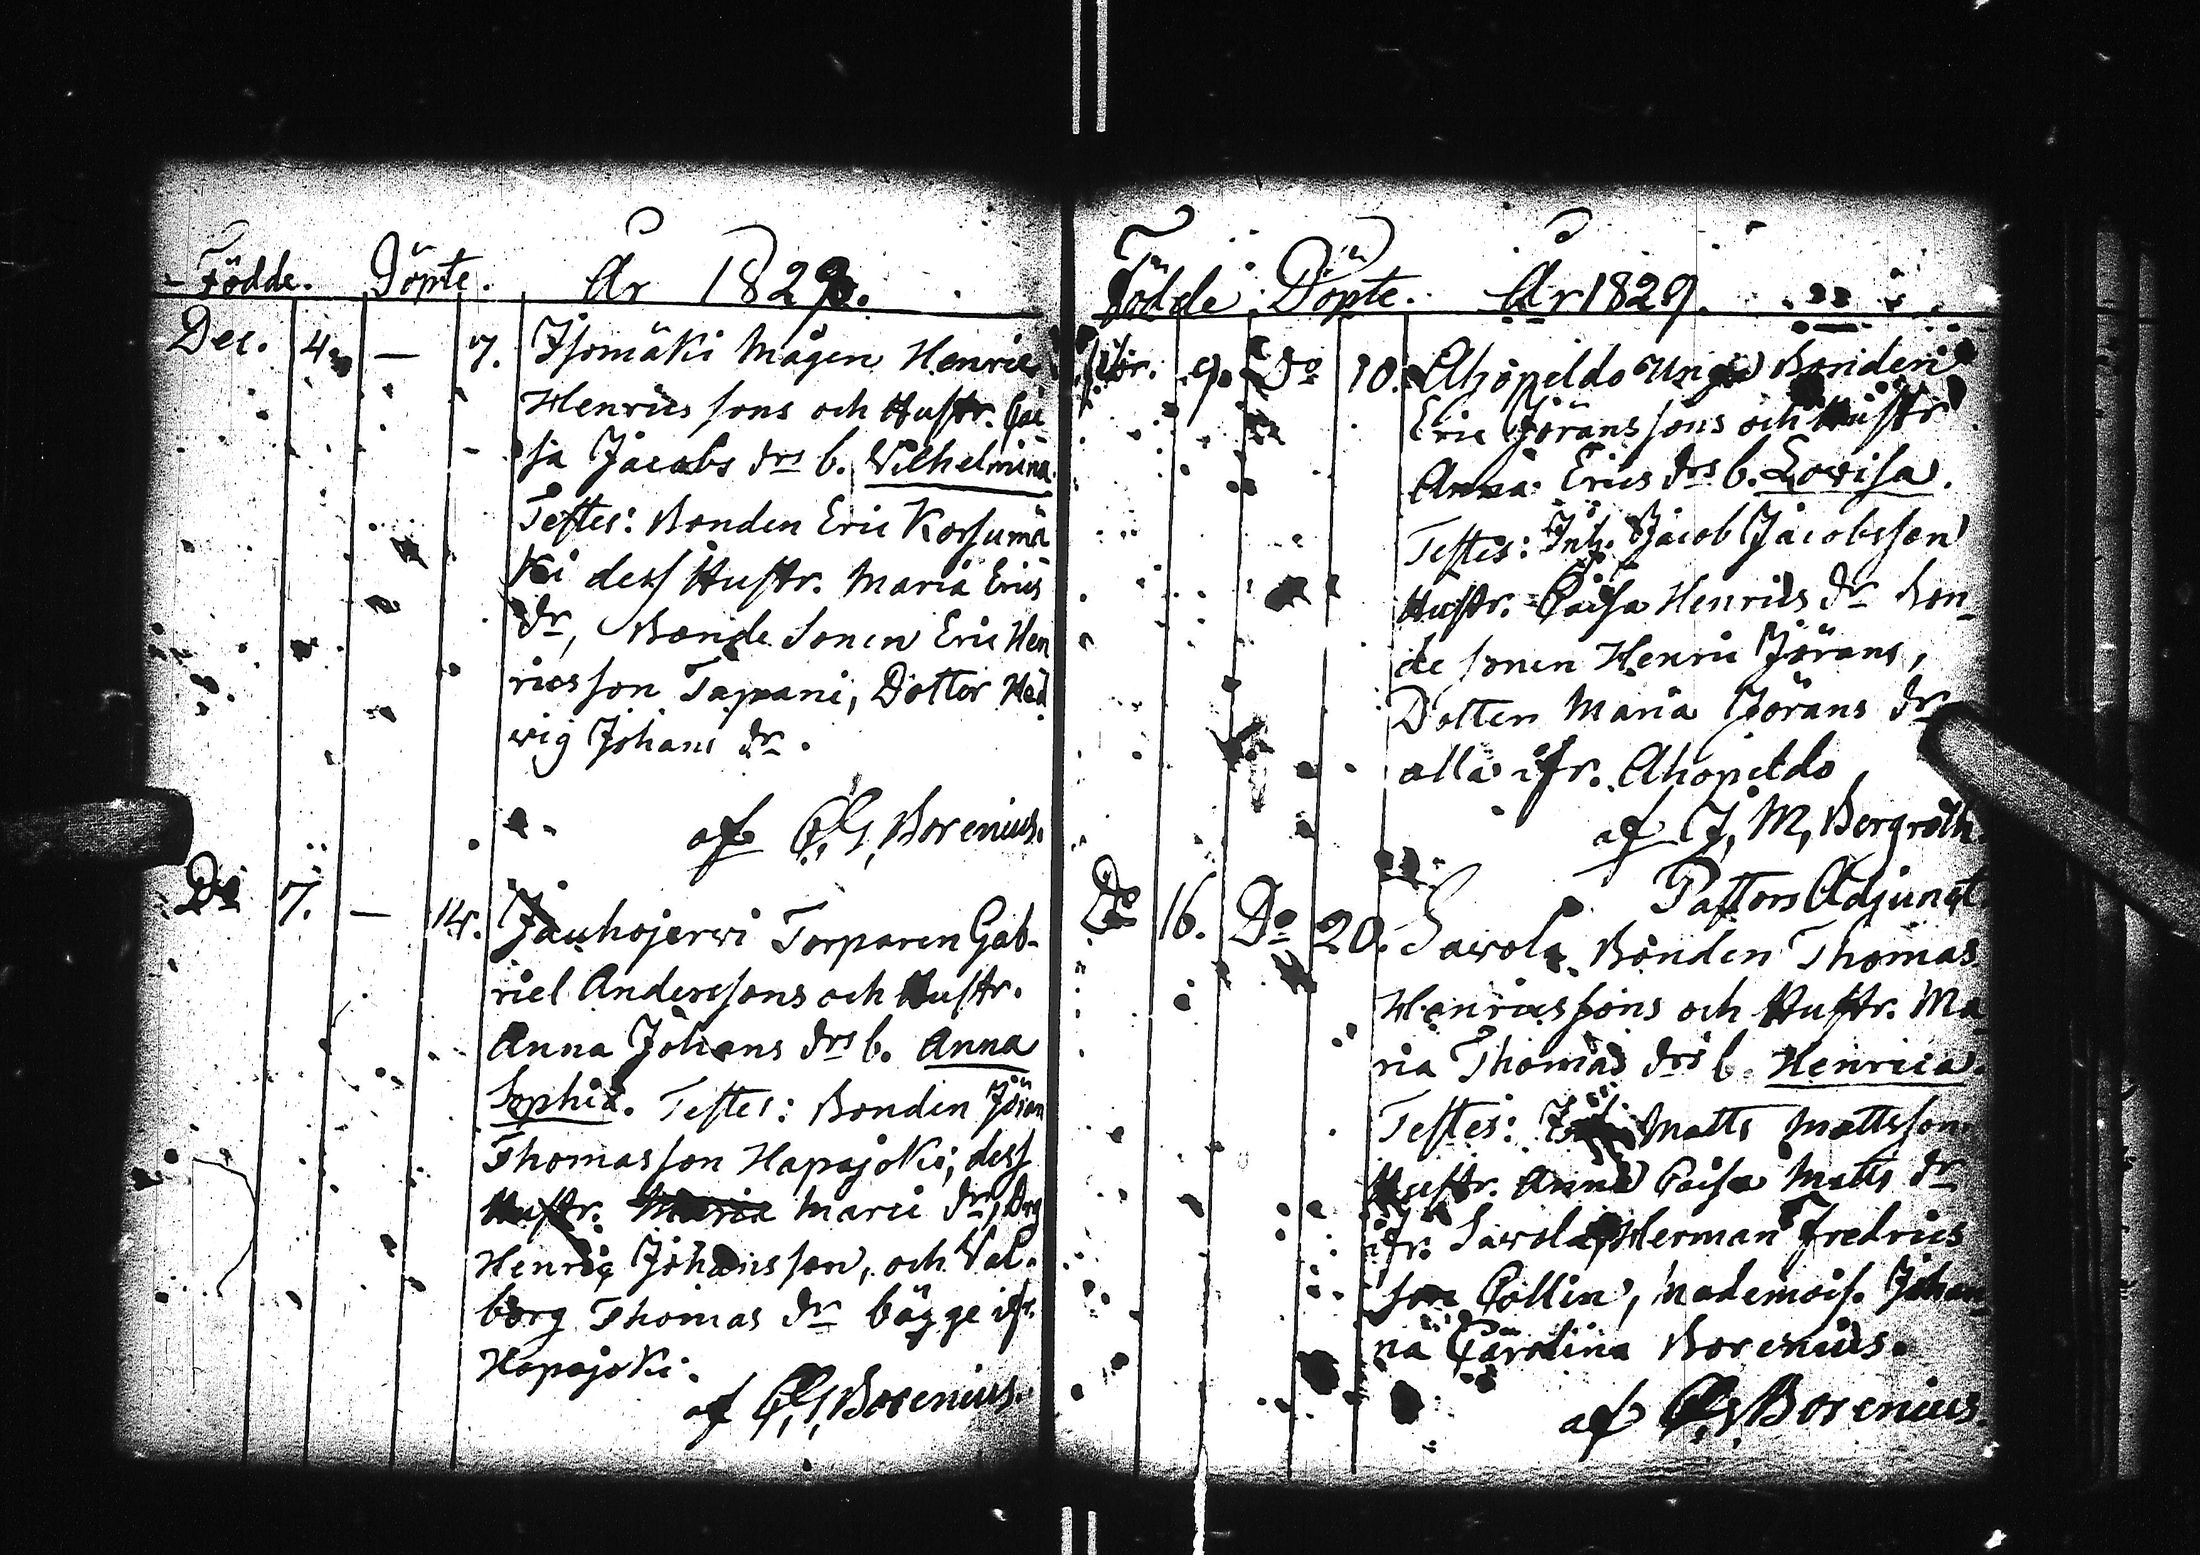 Födde. Döpte. År 1829.
Dec. 4. — 7. Isomäki Mågen Henric
Henrics sons och Hustr. Cai
sa Jacobs drs b. Vilhelmina
Testes: Bonden Eric Korsumä
ki dess Hustr. Maria Erics
dr, Bonde Sonen Eric Hen
ricsson Tapani, Dotter Hed
wig Johans dr.
af C. G. Borenius.
Do 7. — 14. Jauhojerwi Torparen Gab-
riel Anderssons och Hustr.
Anna Johans drs b. Anna
Sophia. Testes: Bonden Jöran
Thomasson Hapajoki; dess
Hustr. Maria Marci dr, Drg
Henric Johansson, och Val-
borg Thomas dr bägge ifr.
Hapajoki.
af C. G. Borenius.
Födde Döpte. År 1829.
9. Do 10. Ahopeldo Unga Bonden
Eric Jöranssons och Hustr
Anna Erics drs b. Lovisa.
Testes: Inh. Jacob Jacobsson
Hustr. Caisa Henrics dr Bon-
de sonen Henric Jörans,
Dotten Maria Jörans dr
alla ifr. Ahopeldo
af J. M. Bergroth
Pastors Adjunct
Do 16. Do 20. Savola Bonden Thomas
Henricssons och Hustr. Ma
ria Thomas drs b. Henrica.
Testes: Inh. Matts Mattsson
Hustr. Anna Caisa Matts dr
ifr. Savola, Herman Fredrics
son Collin, Mademois. Johan-
na Carolina Borenius.
af C. G. Borenius.